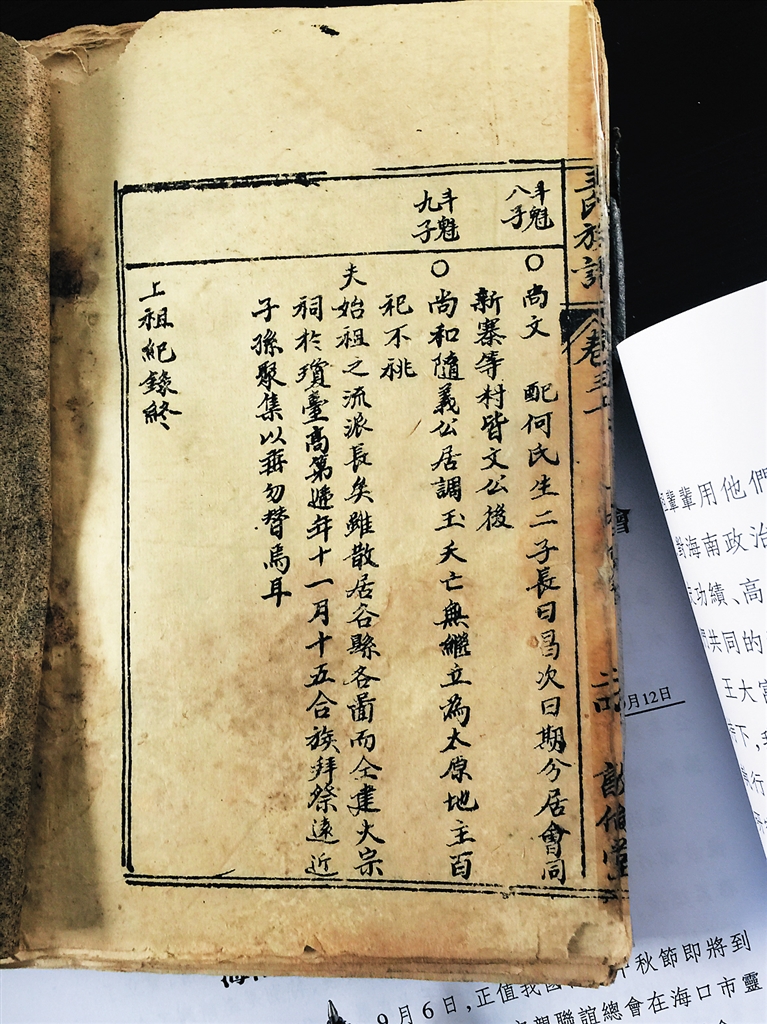 王氏族譜
卷三十
斗魁
八子
○尚文 配何氏生二子長曰昌次曰期分居會同
新寨等村皆文公後
斗魁
九子
○尚和隨義公居調玉夭亡無繼立為太原地主百
祀不祧
夫始祖之流派長矣雖散居各縣各啚而仝建大宗
祠於瓊臺高第遞年十一月十五合族拜祭遠近
子孫聚集以莽勿替焉耳
上祖紀錄終
輩用他們
海南政治
功績、高
共同的
王大富
下,
行
月12日
秋節即將到
9月6日,正值我國
聯誼總會在海口市靈